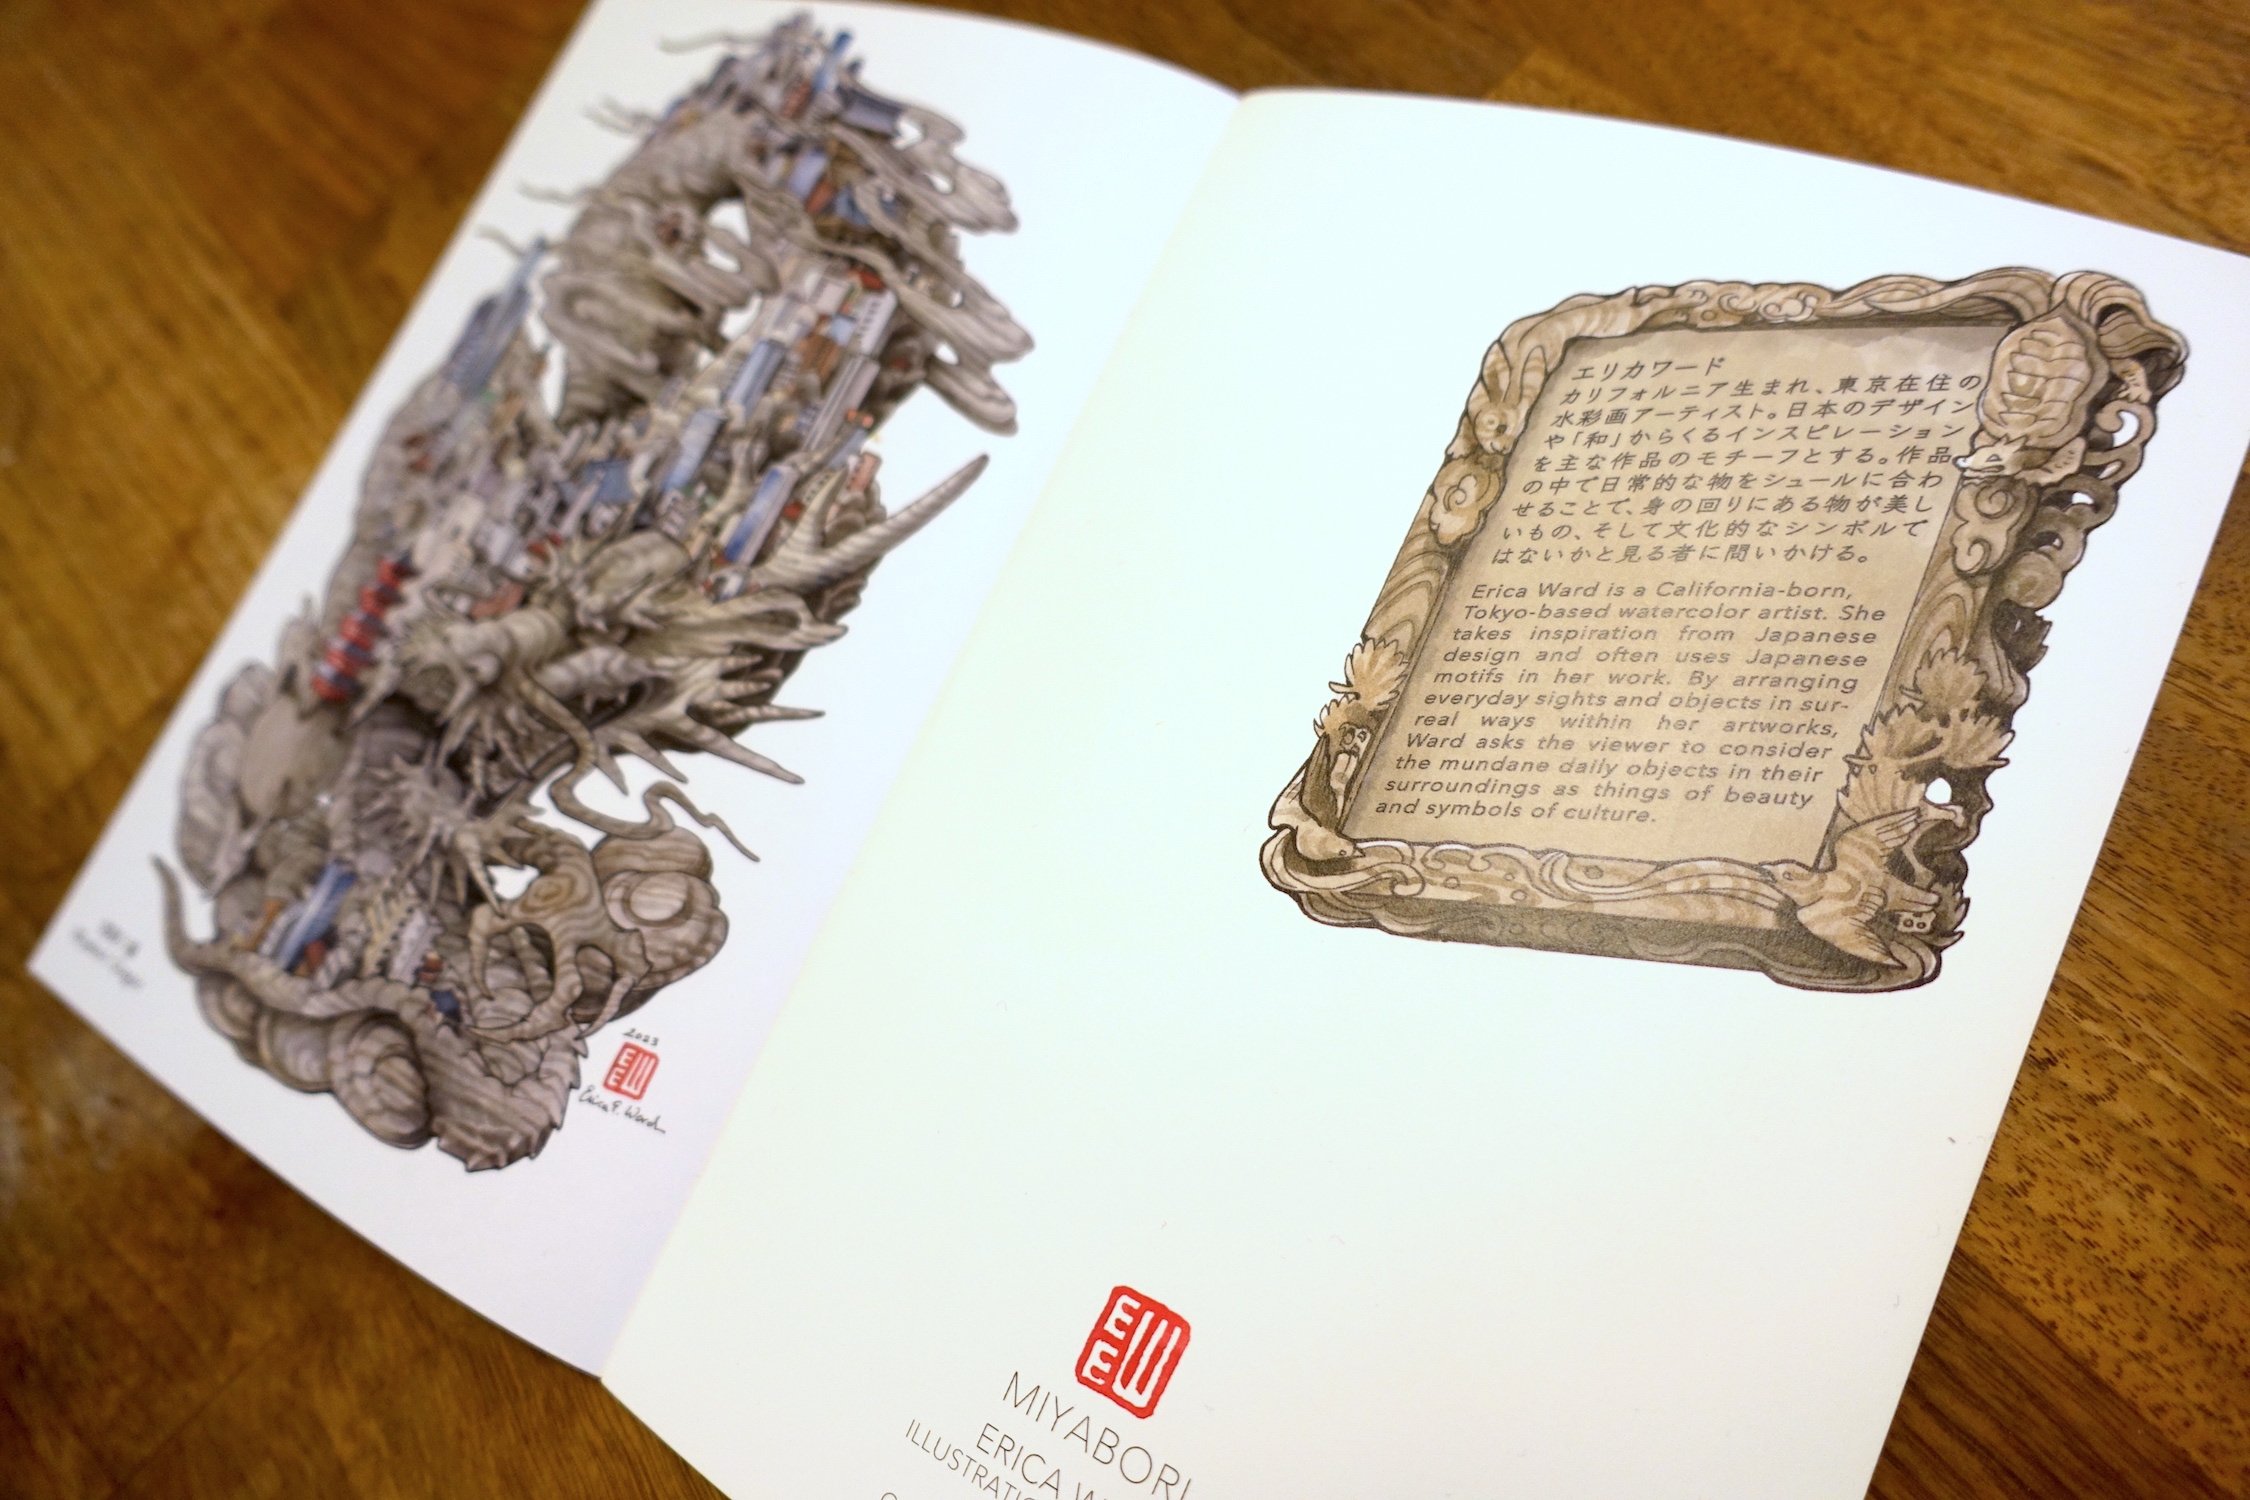 2023
Erica E. Ward
エリカワード
カリフォルニア生まれ、東京在住の
水彩画アーティスト。日本のデザイン
や「和」からくるインスピレーション
を主な作品のモチーフとする。作品
の中で日常的な物をシュールに合わ
せることで、身の回りにある物が美し
いもの、そして文化的なシンボルで
はないかと見る者に問いかける。
Erica Ward is a California-born,
Tokyo-based watercolor artist. She
takes inspiration from Japanese
design and often uses Japanese
motifs in her work. By arranging
everyday sights and objects in sur-
real ways within her artworks,
Ward asks the viewer to consider
the mundane daily objects in their
surroundings as things of beauty
and symbols of culture.
MIYABORI
ERICA